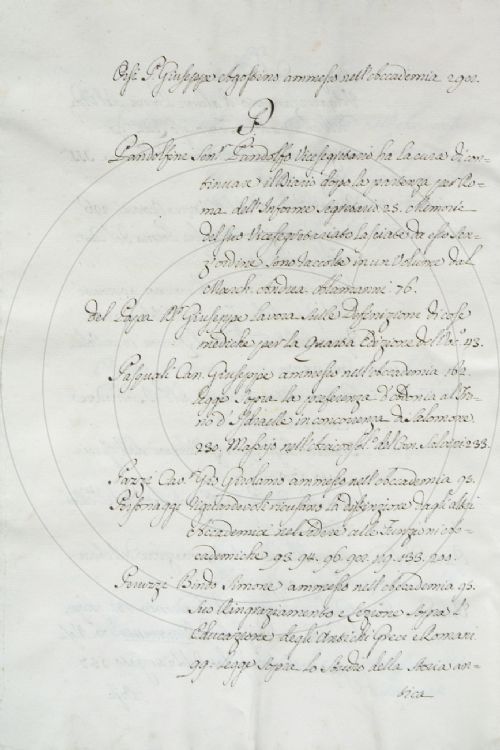 Orsi P. Giuseppe Agostino ammesso nell'Accademia 200.
P
Pandolfini Sen.r Pandolfo Vicesegretario ha la cura di con-
tinuare il Diario dopo la partenza per Ro-
ma dell'Informe Segretario 25. Memorie
del suo Vicesegretariato lasciate da esso sen-
z'ordine sono raccolte in un Volume dal
March. Andrea Alamanni 76.
del Papa D.r Giuseppe lavora sulle Definizioni di cose
mediche per la Quarta Edizione dell' 43.
Pasquali Can. Giuseppe ammesso nell'Accademia 162.
legge sopra la preferenza d'Adonia al Tro-
no d'Isdraelle in concorrenza di Salomone
230. Massajo nell' del Can. Salvini 233.
Pazzi Cav.r Gio. Girolamo ammesso nell'Accademia 93.
Personaggi Ragguardevoli ricusano la distinzione dagli altri
Accademici nel sedere alle Funzioni Ac-
cademiche 93. 94. 96. 133.
Peruzzi Bindo Simone ammesso nell'Accademia 93.
Suo Ringraziamento e Lezione sopra l'
Educazione degli Antichi Greci e Romani
99. legge sopra lo Studio della Storia an-
tica